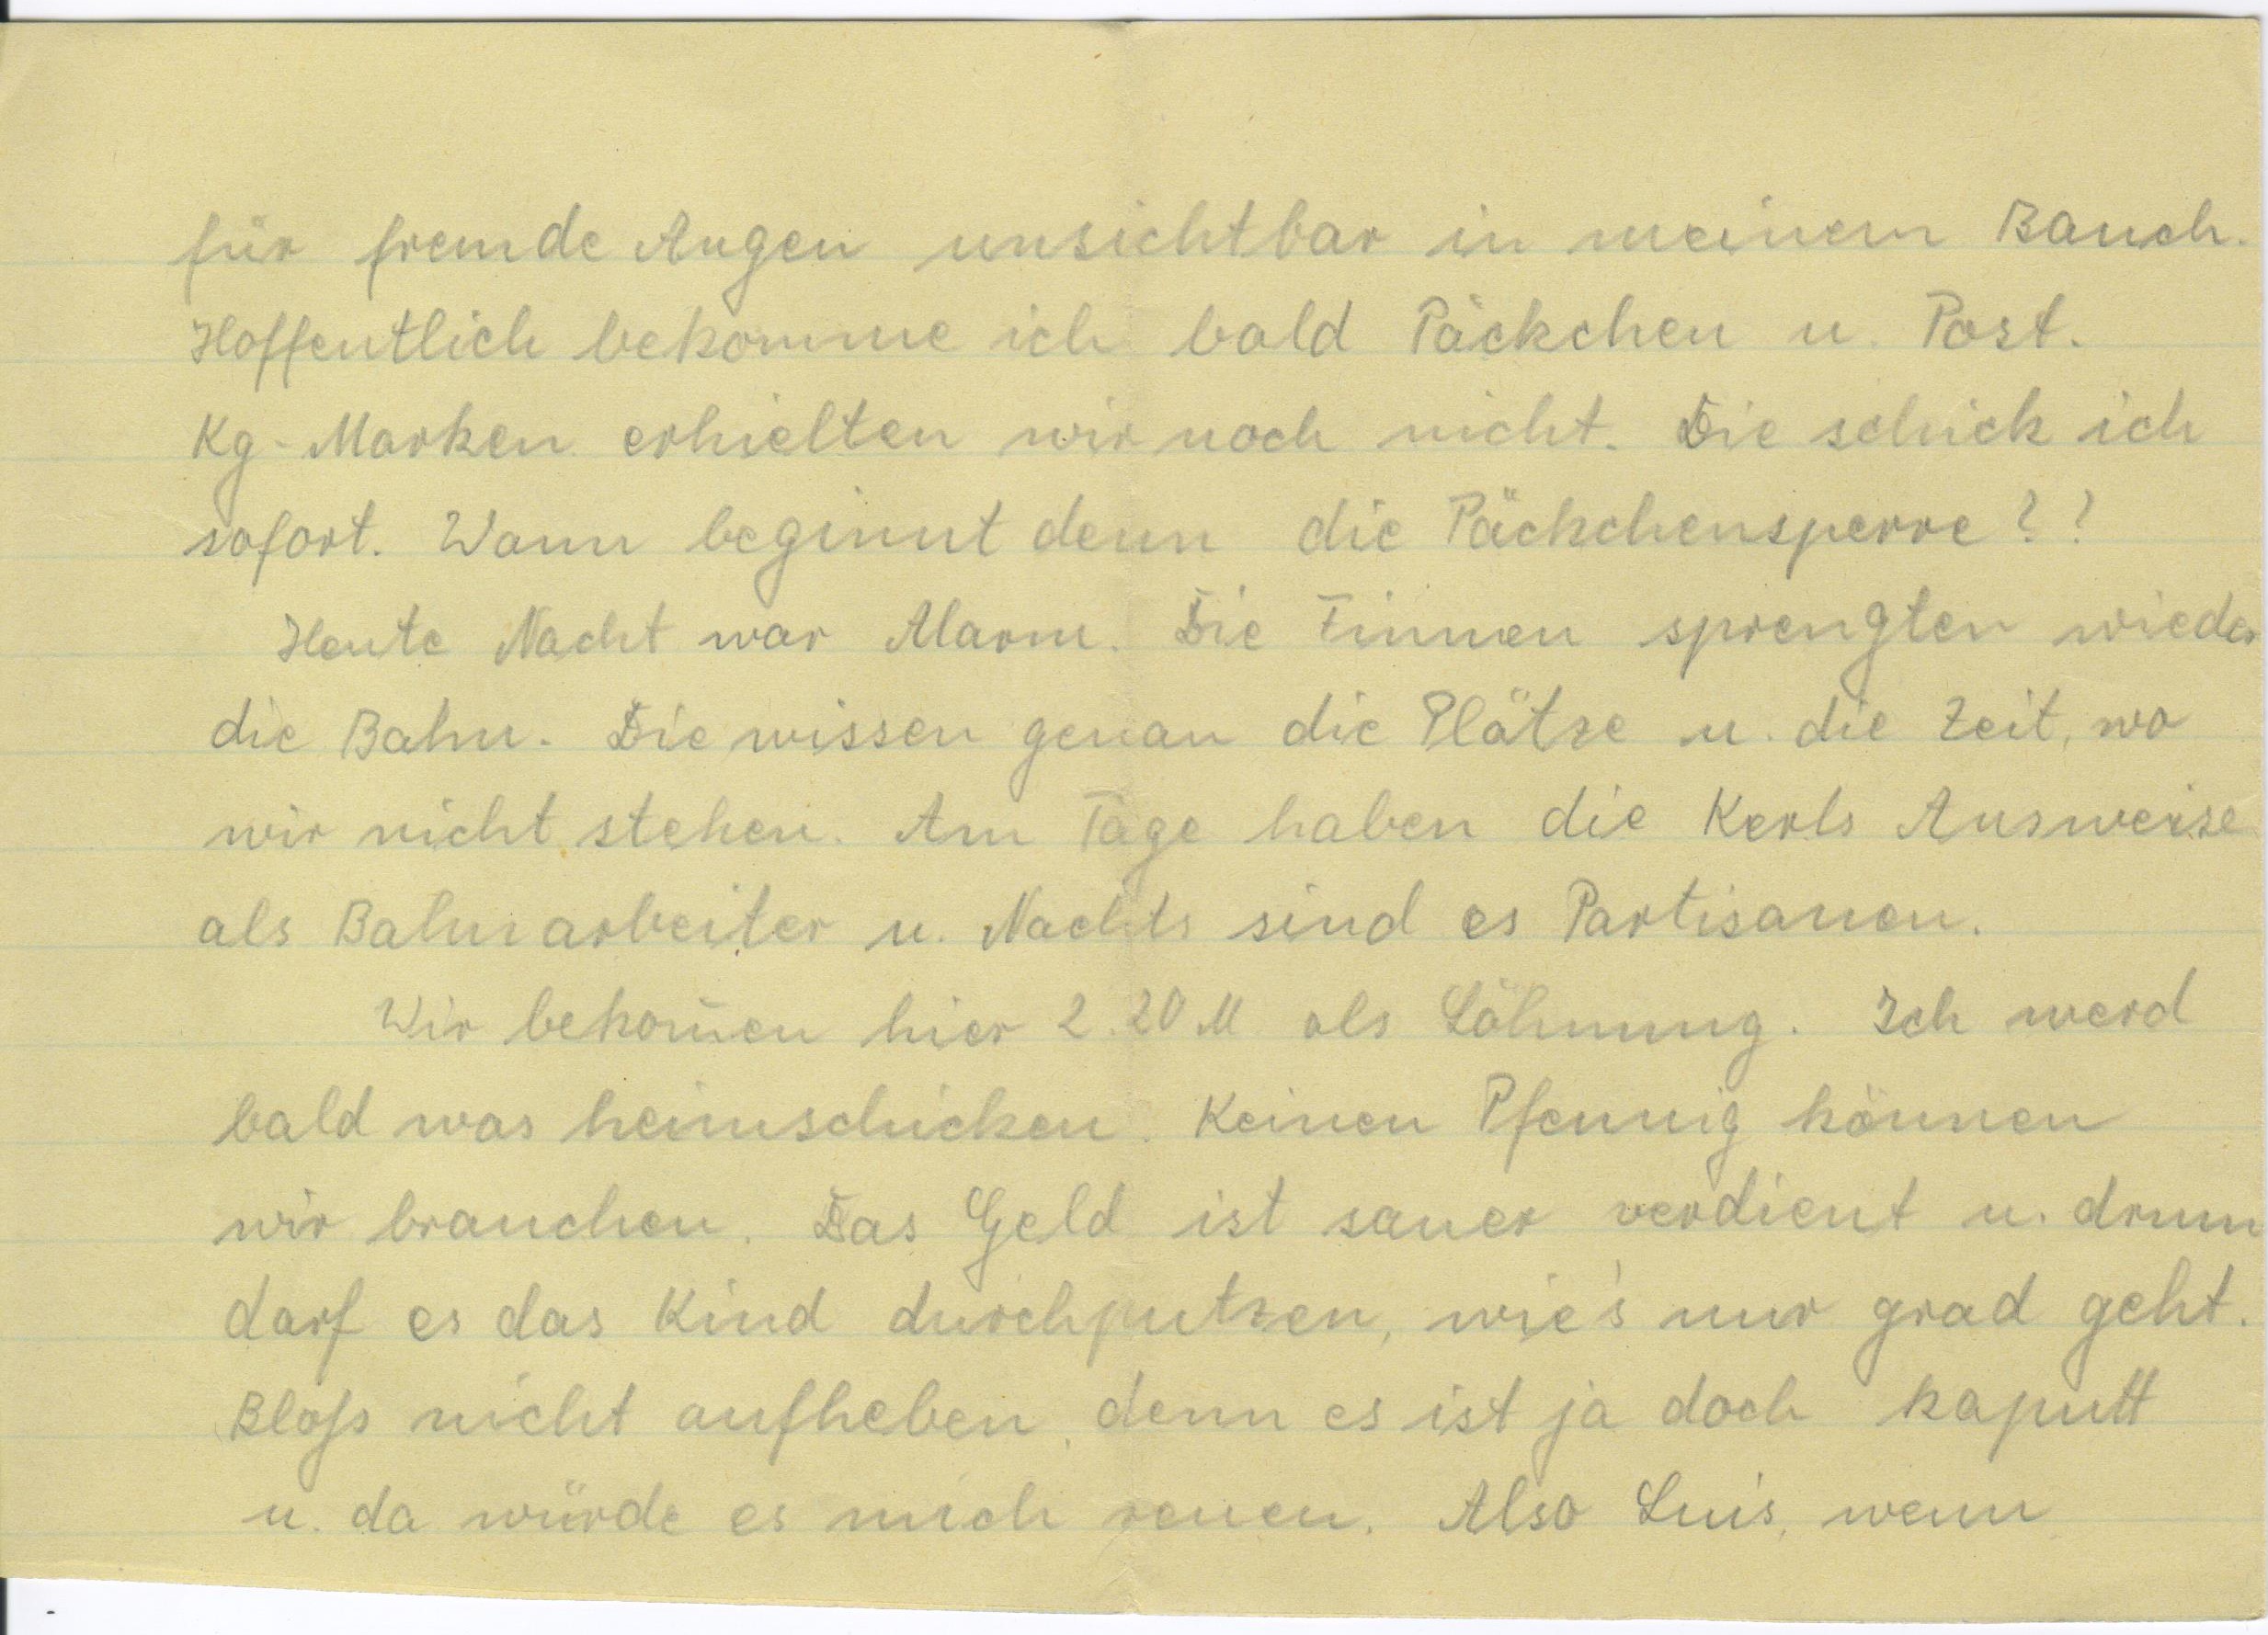 für fremde Augen unsichtbar in meinem Bauch.
Hoffentlich bekomme ich bald Päckchen u. Post.
Kg-Marken erhielten wir noch nicht. Die schick ich
sofort. Wann beginnt denn die Päckchensperre??
Heute Nacht war Alarm. Die Finnen sprengten wieder
die Bahn. Die wissen genau die Plätze u. die Zeit, wo
wir nicht stehen. Am Tage haben die Kerls Ausweise
als Bahnarbeiter u. Nachts sind es Partisanen.
Wir bekom̄en hier 2.20 M als Löhnung. Ich werd
bald was heimschicken. Keinen Pfennig können
wir brauchen. Das Geld ist sauer verdient u. drum
darf es das Kind durchputzen, wie's nur grad geht.
Bloss nicht aufheben, denn es ist ja doch kaputt
u. da würde es mich reuen. Also Luis, wenn